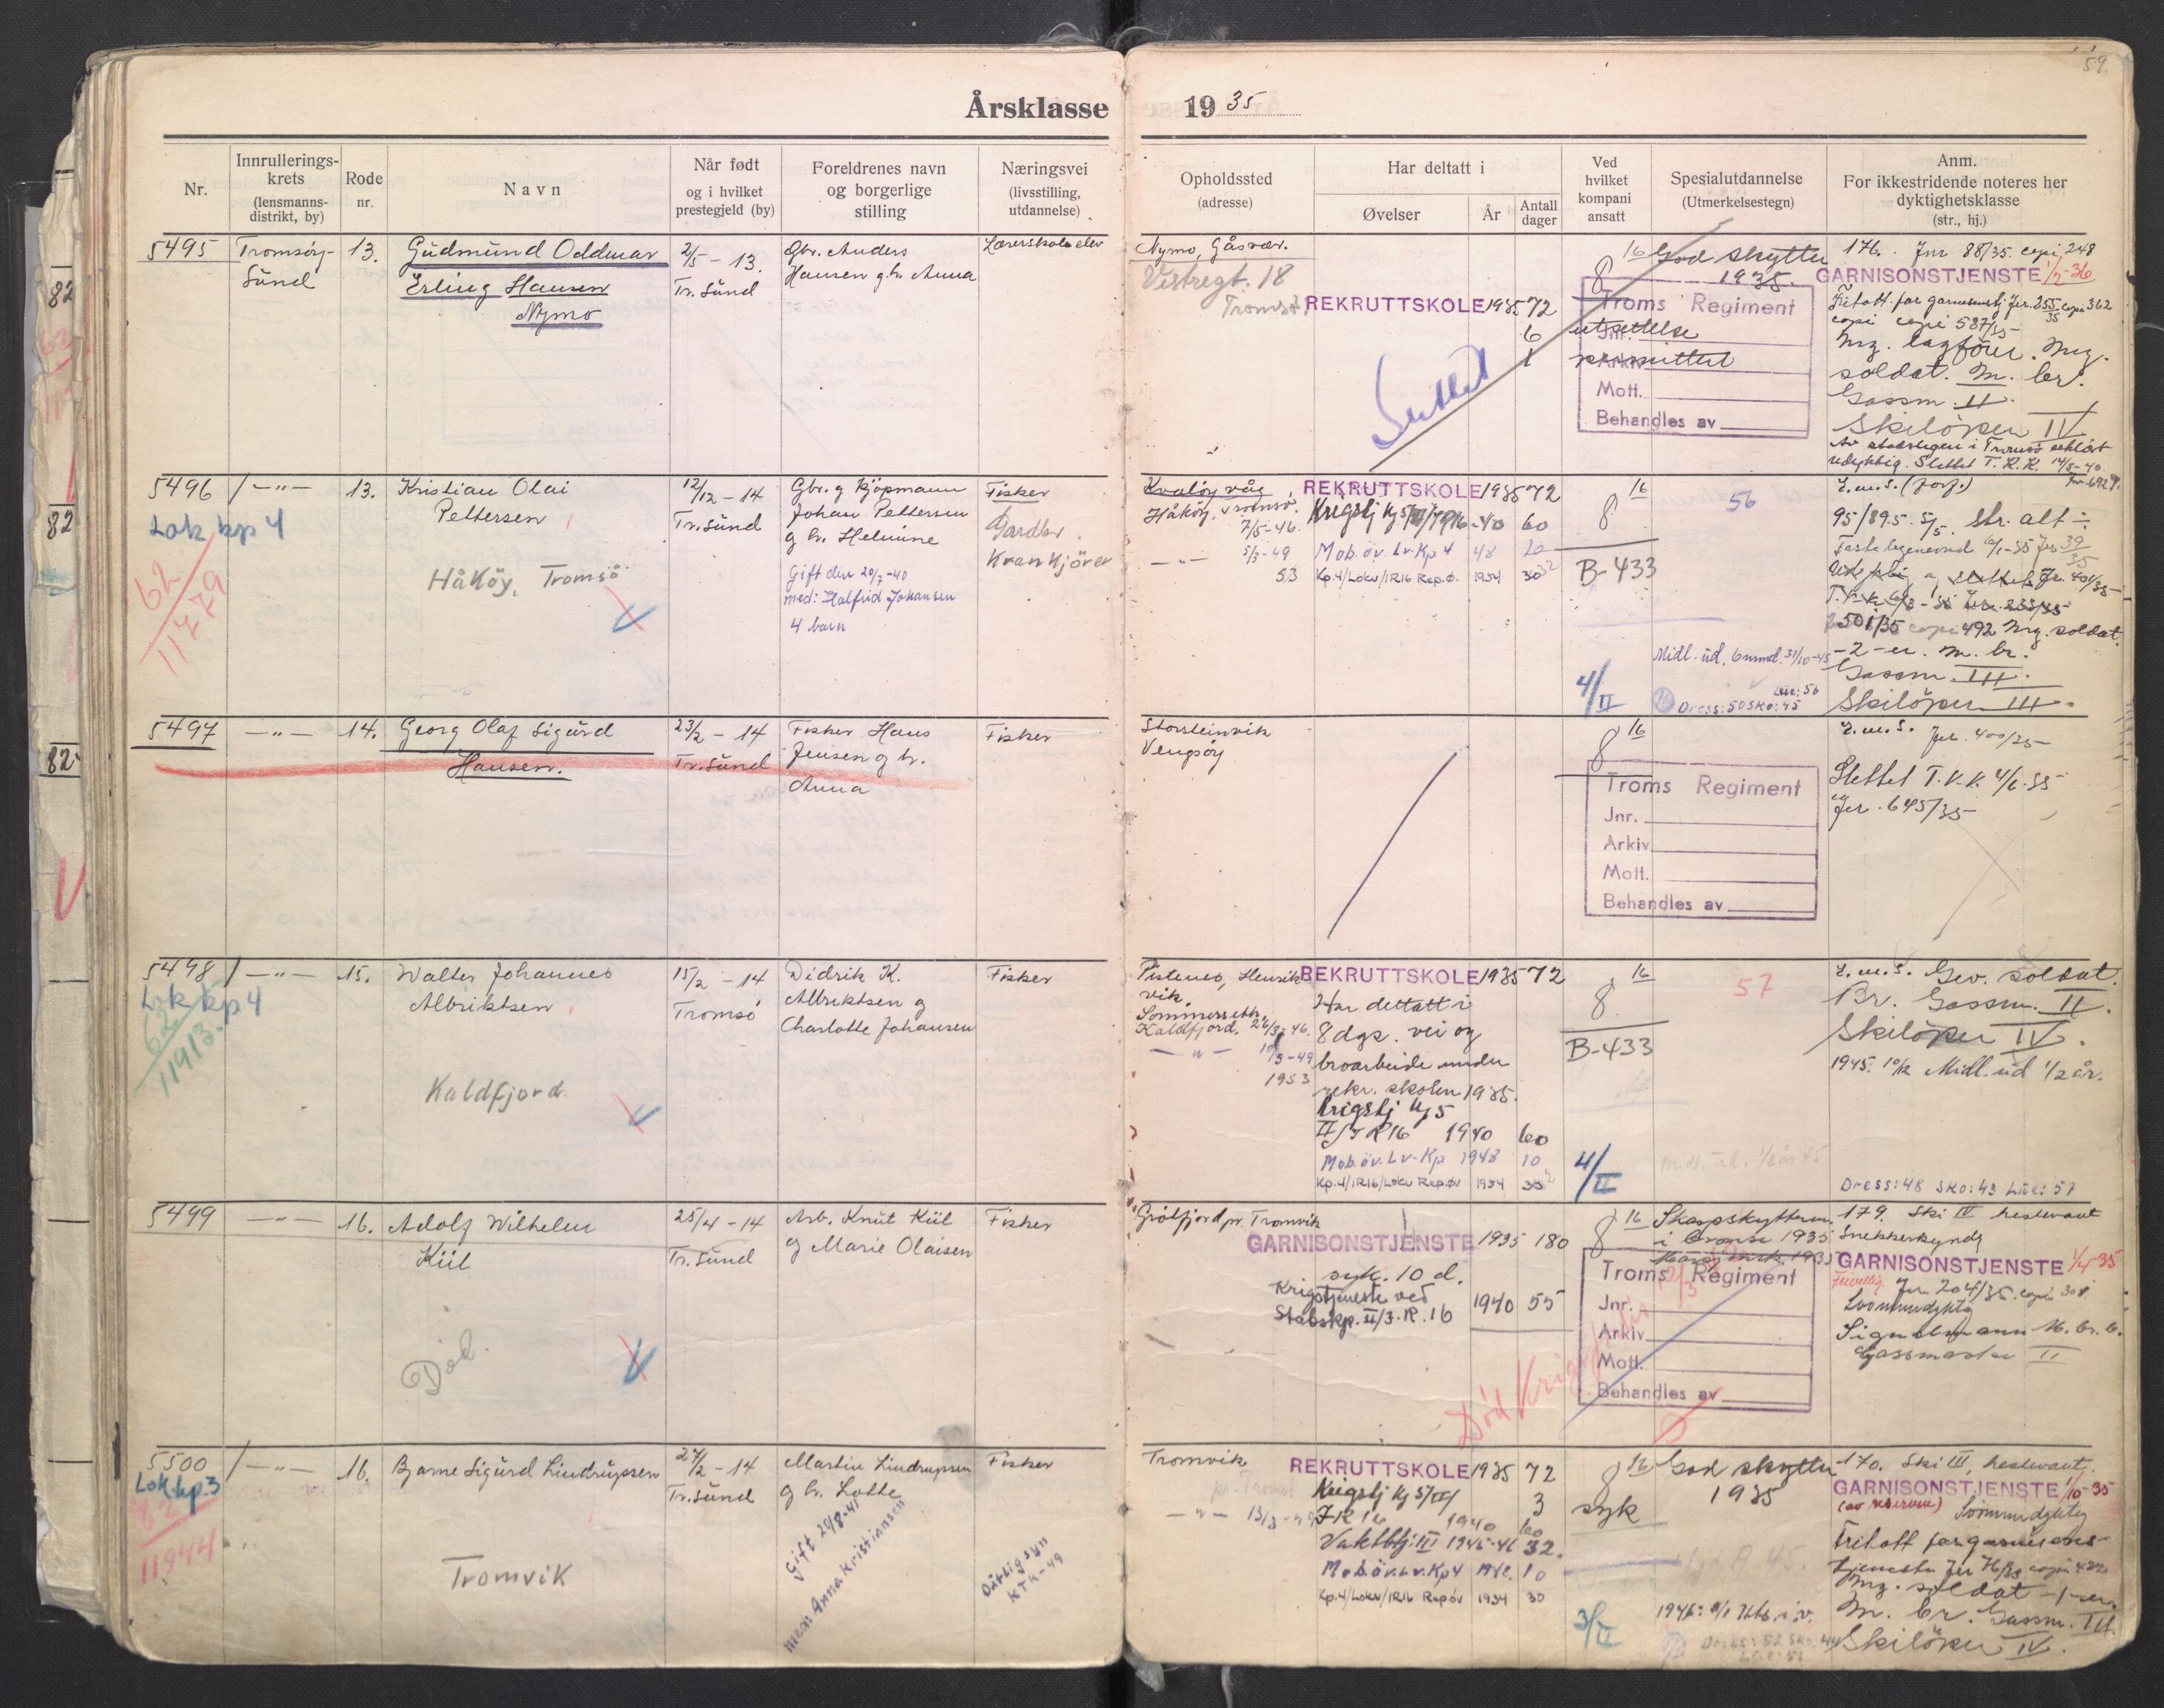 59.
Årsklasse 1935
Nr.
Innrullerings-
krets
(lensmanns-
distrikt, by)
Rode
nr.
Navn
Når født
og i hvilket
prestegjeld (by)
Foreldrenes navn
og borgerlige
stilling
Næringsvei
(livsstilling,
utdannelse)
Opholdssted
(adresse)
Har deltatt i
Øvelser
År
Antall
dager
Ved
hvilket
kompani
ansatt
Spesialutdannelse
(Utmerkelsestegn)
Anm.
For ikkestridende noteres her
dyktighetsklasse
(str., hj.)
5495
Tromsøy-
sund
13.
Gudmund Oddmar
Erling Hansen
Nymo
2/5 - 13.
Tr.sund
Gbr. Anders
Hansen g hr. Anna
Lærerskole elev
Nymo, Gåsvær.
Vestregt. 18
Tromsø
REKRUTTSKOLE 1935 72
6 utsettelse
1 permittert
Slettet
8 16
God skytter
1935.
Troms Regiment
Jnr.
Arkiv
Mott.
Behandles av
176. Jnr 88/35. copi 248
GARNISONSTJENSTE 1/5-36
Fritatt for garnisonstj Jnr. 255/35 copi 362
copi copi 587/35
Mrg. lagfører. Mrg.
soldat. M. br.
Gassm. II.
Skiløper IV
udyktig. Slettet T.K.K. 14/5-40
5496
-"-
13.
Lok kp 4
62
11479
Kristian Olai
Pettersen
Håkøy, Tromsø
12/12 - 14
Tr.sund
Gbr. g kjøpmann
Johan Pettersen
g hr. Helmine
Gift den 20/7-40
med: Halfrid Johansen
4 barn
Fisker
Gardbr.
Krankjører
Kvaløyvåg
Håkøy, Tromsø.
7/5-46.
-"- 5/3-49
53
REKRUTTSKOLE 1935 72
Krigstj Kj 5/II/IR16 -40 60
Mob.øv. Lv. Kp 4 48 10
Kp.4/Lokv/IR16 Rep.ø. 1954 30
8 16
B-433
4/II
56
Midl. ud. 6 mnd. 31/10-45
Lue: 56
Dress: 50 Sko: 45
L.m.S. (forf.)
95/89.5. 5/5. Str. alt ÷
501/35 copi 492 Mrg. soldat.
-2-er. M. br.
Gassm. III.
Skiløper III.
5497
-"-
14.
Georg Olaf Sigurd
Hansen.
23/2 - 14
Tr.sund
Fisker Hans
Jensen g hr.
Anna
Fisker
Storsteinvik
Vengsøy
8 16
Troms Regiment
Jnr.
Arkiv
Mott.
Behandles av
L.m.S. Jnr. 400/35
Slettet T.K.K. 4/6-35
Jnr. 645/35
5498
-"-
15.
Lok kp 4
62
11913.
Walter Johannes
Albriktsen
Kaldfjord.
15/2 - 14
Tromsø
Didrik K.
Albriktsen g
Charlotte Johansen
Fisker
Pisteneo, Henrik-
vik.
Kaldfjord. 26/3-46.
-"- 10/3-49
1953
REKRUTTSKOLE 1935 72
Har deltatt i
8 dgs. vei og
broarbeide under
rekr. skolen 1935.
Krigstj Kj 5
II/IR16 1940 60
Mob.øv. Lv-Kp 1948 10
Kp.4/IR16/Lokv Rep.øv 1954 30
8 16
B-433
4/II
57
Midl. ud. 1/2 år 45
L.m.S. Gev. soldat.
Br. Gassm. II.
Skiløper IV.
1945. 10/12 Midl. ud 1/2 år.
Dress: 48 Sko: 43 Lue: 57
5499
-"-
16.
Adolf Wilhelm
Kiil
Død.
25/4 - 14
Tr.sund
Arb. Knut Kiil
g Marie Olaisen
Fisker
Grøtfjord pr. Tromvik
GARNISONSTJENSTE 1935 180
syk. 10 d.
Krigstjeneste ved
Stabskp. II/I.R.16 1940 55
Død
8 16
Skarpskytterm.
i bronse 1935
Troms Regiment
Jnr.
Arkiv
Mott.
Behandles av
179. Ski IV hestevant
Snekkerkyndig
GARNISONSTJENSTE 1/4-35
Frivillig. Jnr 204/35. copi 308
Svømmedyktig
Signalmann M. br. 6.
Gassmaske II
5500
-"-
16.
Lok.kp.3
62
11944
Bjarne Sigurd Lindrupsen
Tromvik
27/2 - 14
Tr.sund
Martin Lindrupsen
g hr. Lotte
Gift 20/8-41
med: Anna Kristiansen
Fisker
Dårlig syn
KTK-49
Tromvik
pr. Tromsø
-"- 13/3-49
REKRUTTSKOLE 1935 72
3 syk
Krigstj Kj 5/II/
IR 16 1940 60
Vaktbtj. III 1945-46 32.
Mob.øv.Lv.Kp4 1948. 10
Kp.4/Lokv/IR16 Rep.øv 1954 30
8 16
3/II
God skytter
1935
170. Ski III, hestevant.
GARNISONSTJENSTE 1/10-35
(av reserven) Svømmedyktig
Fritatt for garnisons-
tjeneste
Mrg. soldat -1-er.
M. br. Gassm. III.
Skiløper IV.